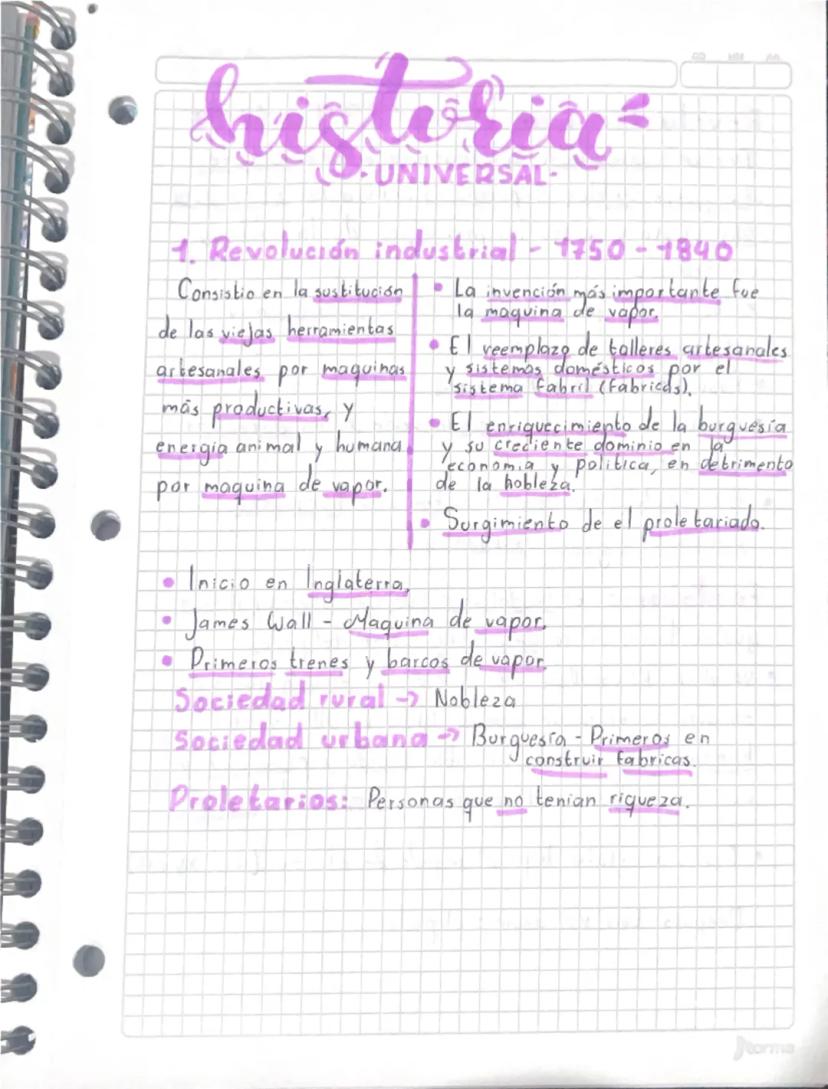 historia
·UNIVERSAL·
1. Revolución industrial - 1750 - 1840
Consistio en la sustitución
de las viejas herramientas
artesanales por maquinas
más productivas, y
energia animal y humana
por maquina de vapor.
• La invención más importante fue
la maquina de vapor.
• El reemplazo de talleres artesanales
y sistemas domésticos por el
sistema fabril (fabricas).
• El enriquecimiento de la burguesía
y su creciente dominio en la
economia y politica, en detrimento
de la nobleza.
• Surgimiento de el proletariado.
• Inicio en Inglaterra.
• James Wall - Maquina de vapor.
• Primeros trenes y barcos de vapor.
Sociedad rural -> Nobleza
Sociedad urbana -> Burguesía - Primeros en
construir fabricas.
Proletarios: Personas que no tenian riqueza.
norma